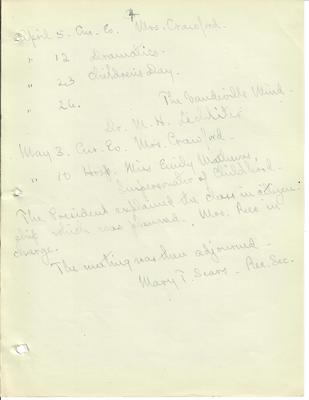 4
April 5. Cur. Ev. Mrs. Crawford.
" 12 Dramatics.
" 23 Children's Day.
" 26. The Vaudeville Mind -
Dr. M. H.
May 3. Cur. Ev. Mrs. Crawford -
" 10 Hosp. Miss Emily
Impersonator of Childhood.
The President explained the class in citizen-
ship which was planned. Mrs. Rees in
charge.
The meeting was then adjourned -
Mary T. Sears - Rec. Sec.